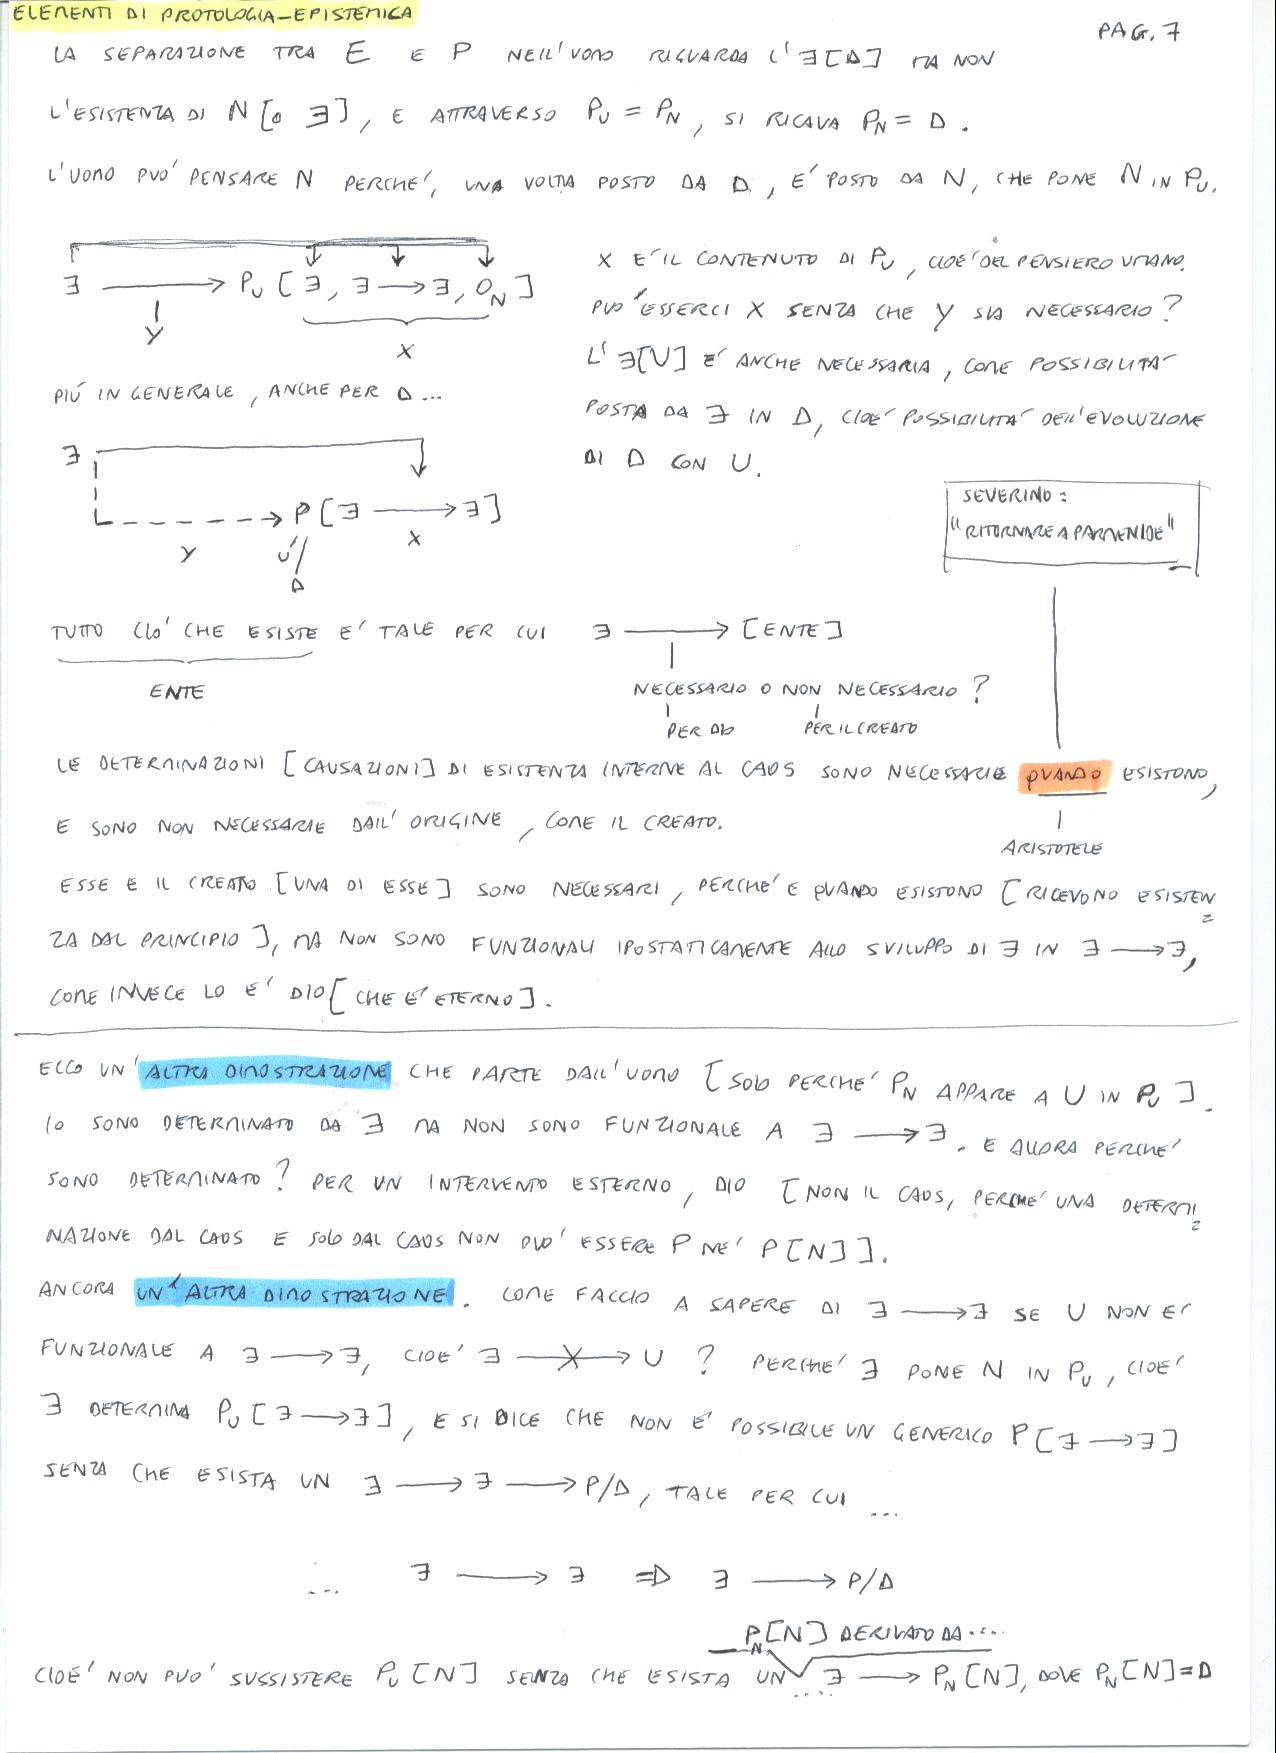 ELEMENTI DI PROTOLOGIA-EPISTEMICA
PAG. 7
LA SEPARAZIONE TRA E E P NELL'UOMO RIGUARDA L'∃[D] MA NON
L'ESISTENZA DI N [O ∃], E ATTRAVERSO PU = PN, SI RICAVA PN = D.
L'UOMO PUO' PENSARE N PERCHE', UNA VOLTA POSTO DA D, E' POSTO DA N, CHE PONE N IN PU.
∃ → PU [∃, ∃ → ∃, ON]
Y
X
X E' IL CONTENUTO DI PU, CIOE' DEL PENSIERO UMANO.
PUO' ESSERCI X SENZA CHE Y SIA NECESSARIO?
L'∃[U] E' ANCHE NECESSARIA, COME POSSIBILITA'
POSTA DA ∃ IN D, CIOE' POSSIBILITA' DELL'EVOLUZIONE
DI D CON U.
PIÚ IN GENERALE, ANCHE PER D...
∃
P [∃ → ∃]
Y
U/
D
X
SEVERINO:
"RITORNARE A PARMENIDE"
TUTTO CIO' CHE ESISTE E' TALE PER CUI ∃ → [ENTE]
ENTE
NECESSARIO O NON NECESSARIO?
PER DIO
PER IL CREATO
LE DETERMINAZIONI [CAUSAZIONI] DI ESISTENZA INTERNE AL CAOS SONO NECESSARIE QUANDO ESISTONO,
E SONO NON NECESSARIE DALL'ORIGINE, COME IL CREATO.
ARISTOTELE
ESSE E IL CREATO [UNA DI ESSE] SONO NECESSARI, PERCHE' E QUANDO ESISTONO [RICEVONO ESISTEN=
ZA DAL PRINCIPIO], MA NON SONO FUNZIONALI IPOSTATICAMENTE ALLO SVILUPPO DI ∃ IN ∃ → ∃,
COME INVECE LO E' DIO [CHE E' ETERNO].
ECCO UN'ALTRA DIMOSTRAZIONE CHE PARTE DALL'UOMO [SOLO PERCHE' PN APPARE A U IN PU].
IO SONO DETERMINATO DA ∃ MA NON SONO FUNZIONALE A ∃ → ∃. E ALLORA PERCHE'
SONO DETERMINATO? PER UN INTERVENTO ESTERNO, DIO [NON IL CAOS, PERCHE' UNA DETERMI=
NAZIONE DAL CAOS E SOLO DAL CAOS NON PUO' ESSERE P NE' P[N]].
ANCORA UN'ALTRA DIMOSTRAZIONE. COME FACCIO A SAPERE DI ∃ → ∃ SE U NON E'
FUNZIONALE A ∃ → ∃, CIOE' ∃ –X→ U? PERCHE' ∃ PONE N IN PU, CIOE'
∃ DETERMINA PU[∃ → ∃], E SI DICE CHE NON E' POSSIBILE UN GENERICO P[∃ → ∃]
SENZA CHE ESISTA UN ∃ → ∃ → P/D, TALE PER CUI ...
... ∃ → ∃ ⇒ ∃ → P/D
PN[N] DERIVATO DA....
CIOE' NON PUO' SUSSISTERE PU[N] SENZA CHE ESISTA UN .... ∃ → PN[N], DOVE PN[N] = D